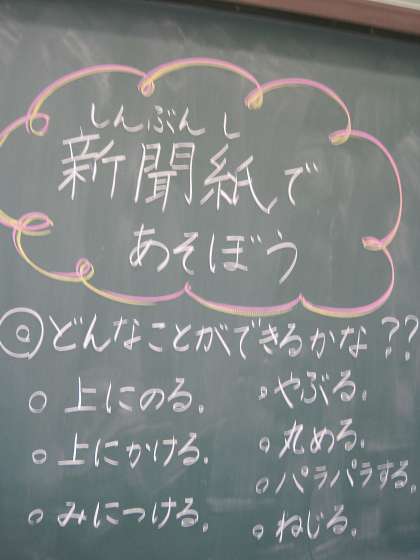 しんぶんし
新聞紙で
あそぼう
◎どんなことができるかな??
○ 上にのる.
○ 上にかける.
○ みにつける.
○ やぶる.
○ 丸める.
○ パラパラする.
○ ねじる.